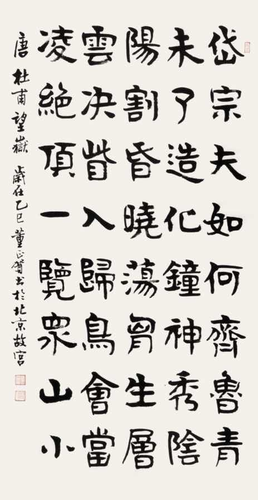 岱宗夫如何齊魯青
未了造化鐘神秀陰
陽割昏曉蕩胷生層
雲决眥入歸鳥會當
凌絕頂一覽衆山小
唐杜甫望嶽歲在乙巳董正賀書於北京故宮